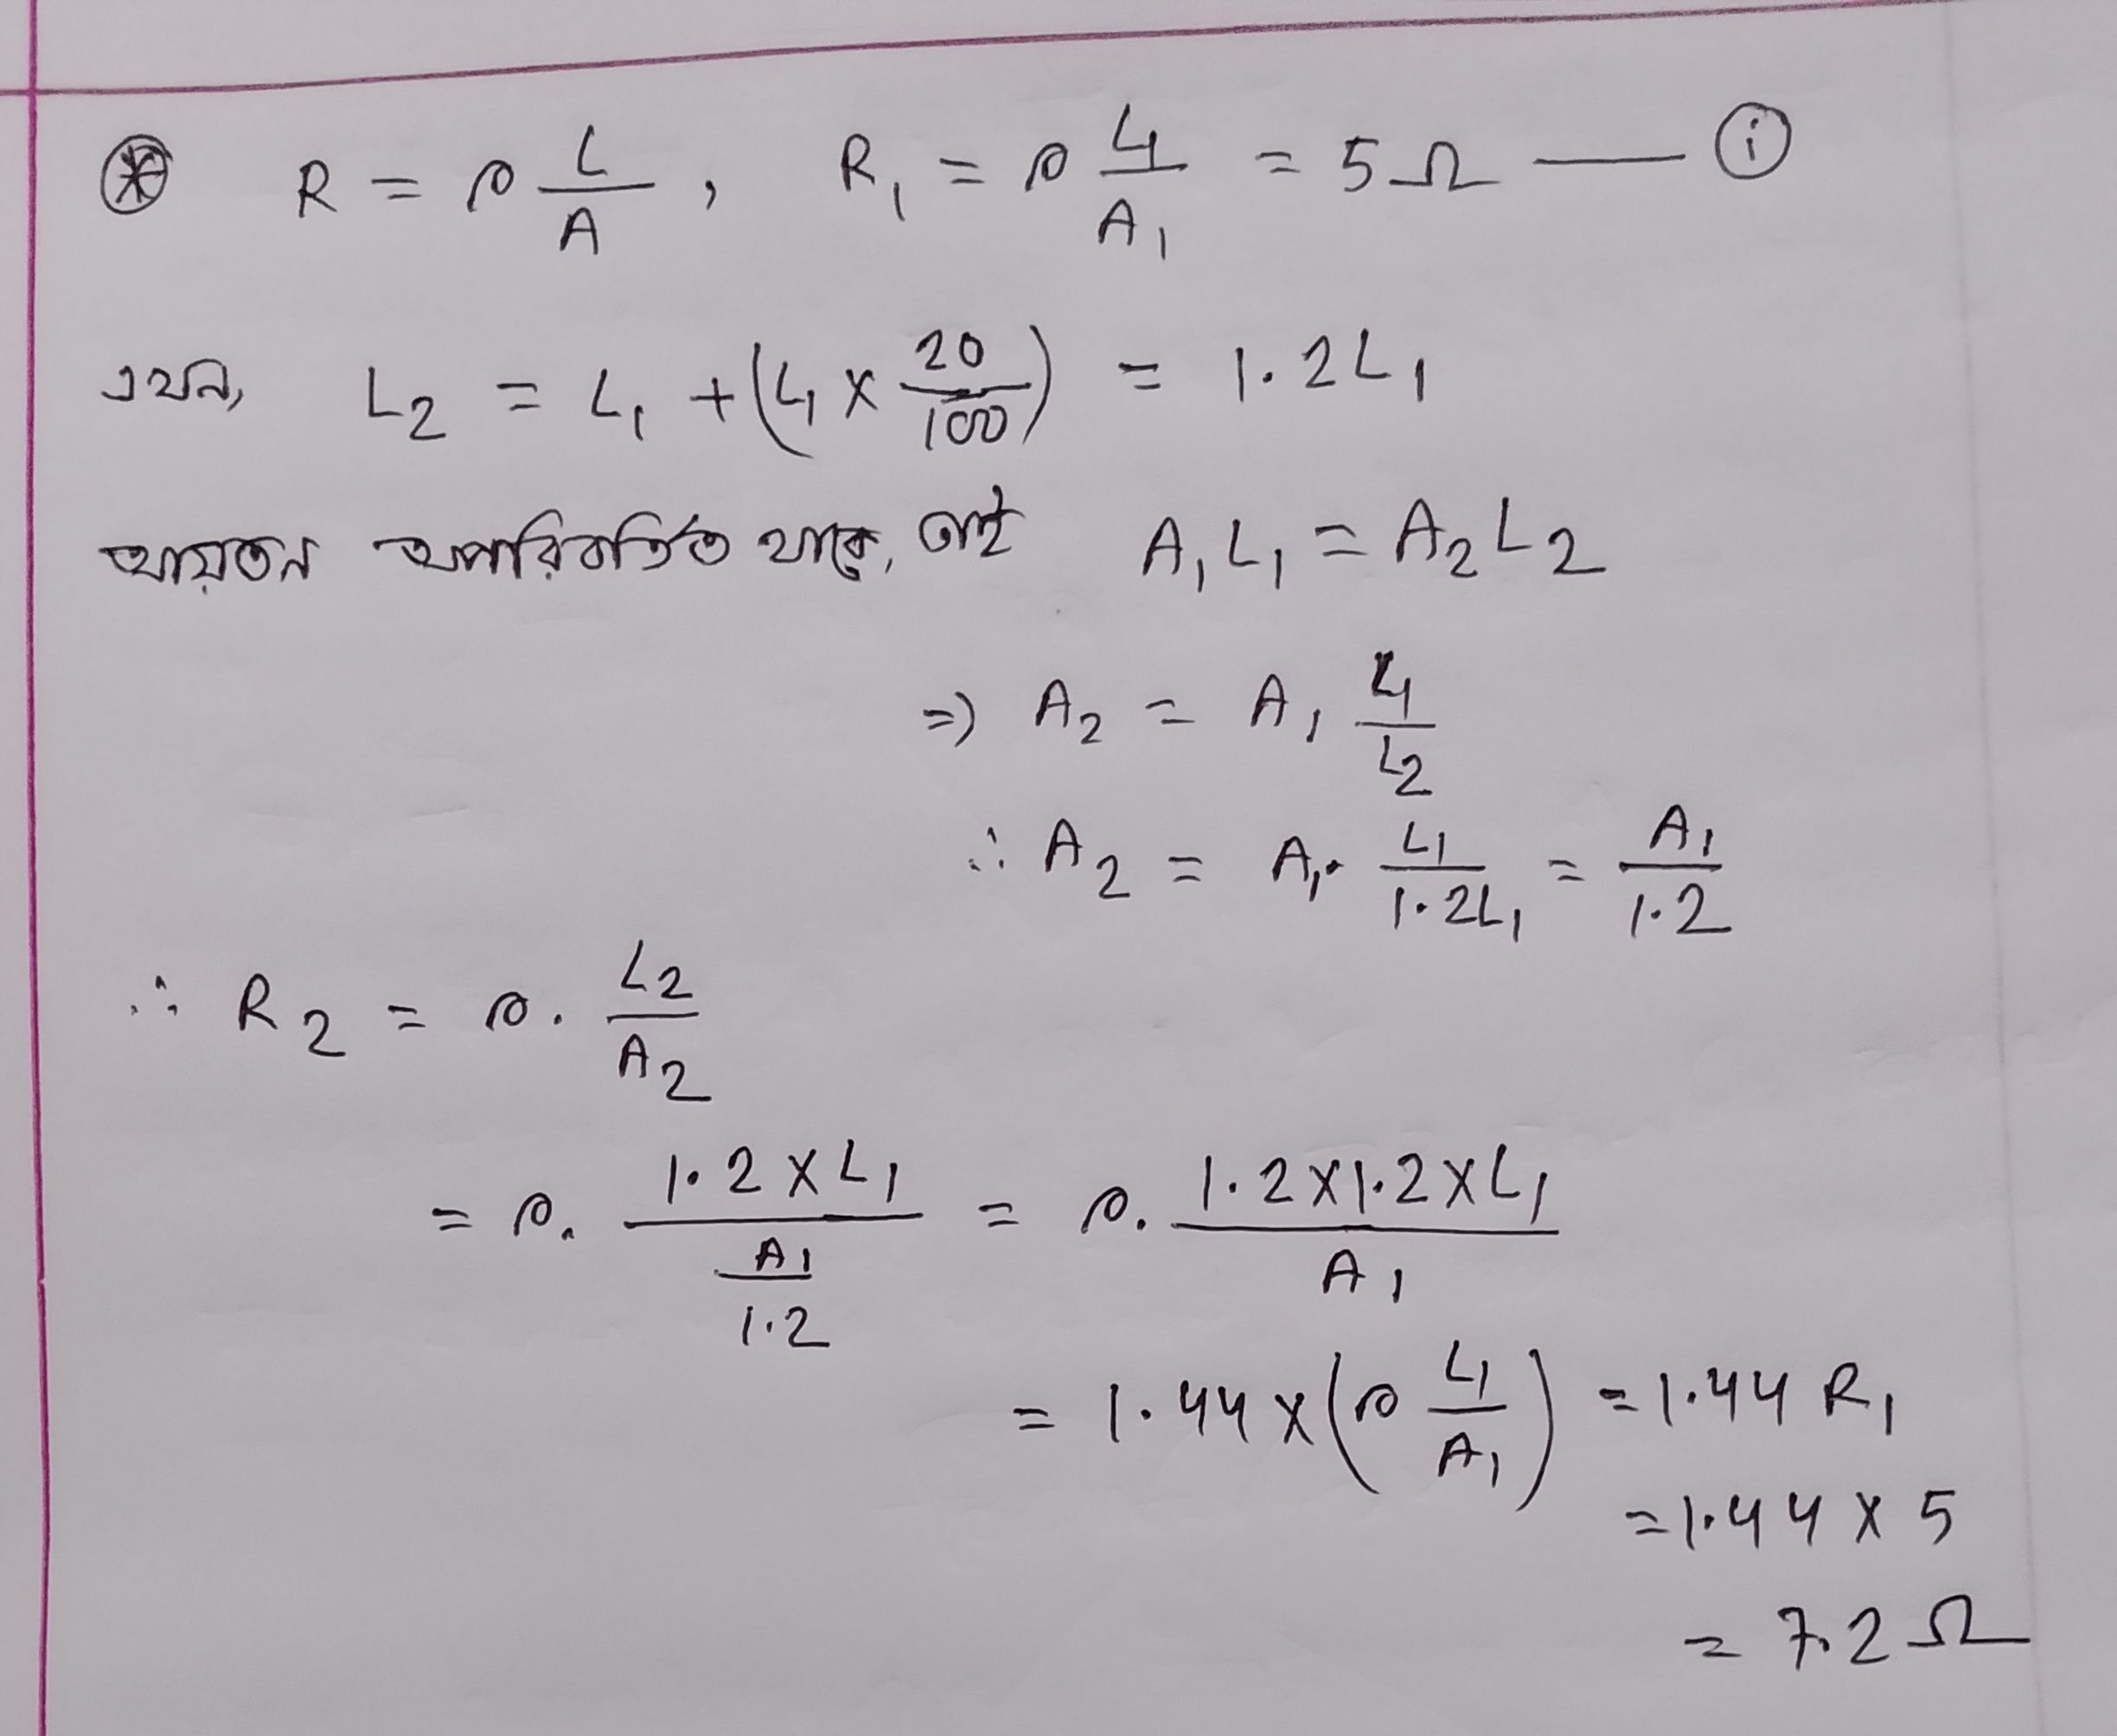 R = ρ L/A , R₁ = ρ L₁/A₁ = 5Ω — (i)
এখন, L₂ = L₁ + (L₁ × 20/100) = 1.2L₁
আয়তন অপরিবর্তিত থাকে, তাই A₁L₁ = A₂L₂
=> A₂ = A₁ L₁/L₂
∴ A₂ = A₁· L₁/1.2L₁ = A₁/1.2
∴ R₂ = ρ. L₂/A₂
= ρ. (1.2×L₁)/(A₁/1.2) = ρ. (1.2×1.2×L₁)/A₁
= 1.44×(ρ L₁/A₁) = 1.44 R₁
= 1.44 × 5
= 7.2 Ω